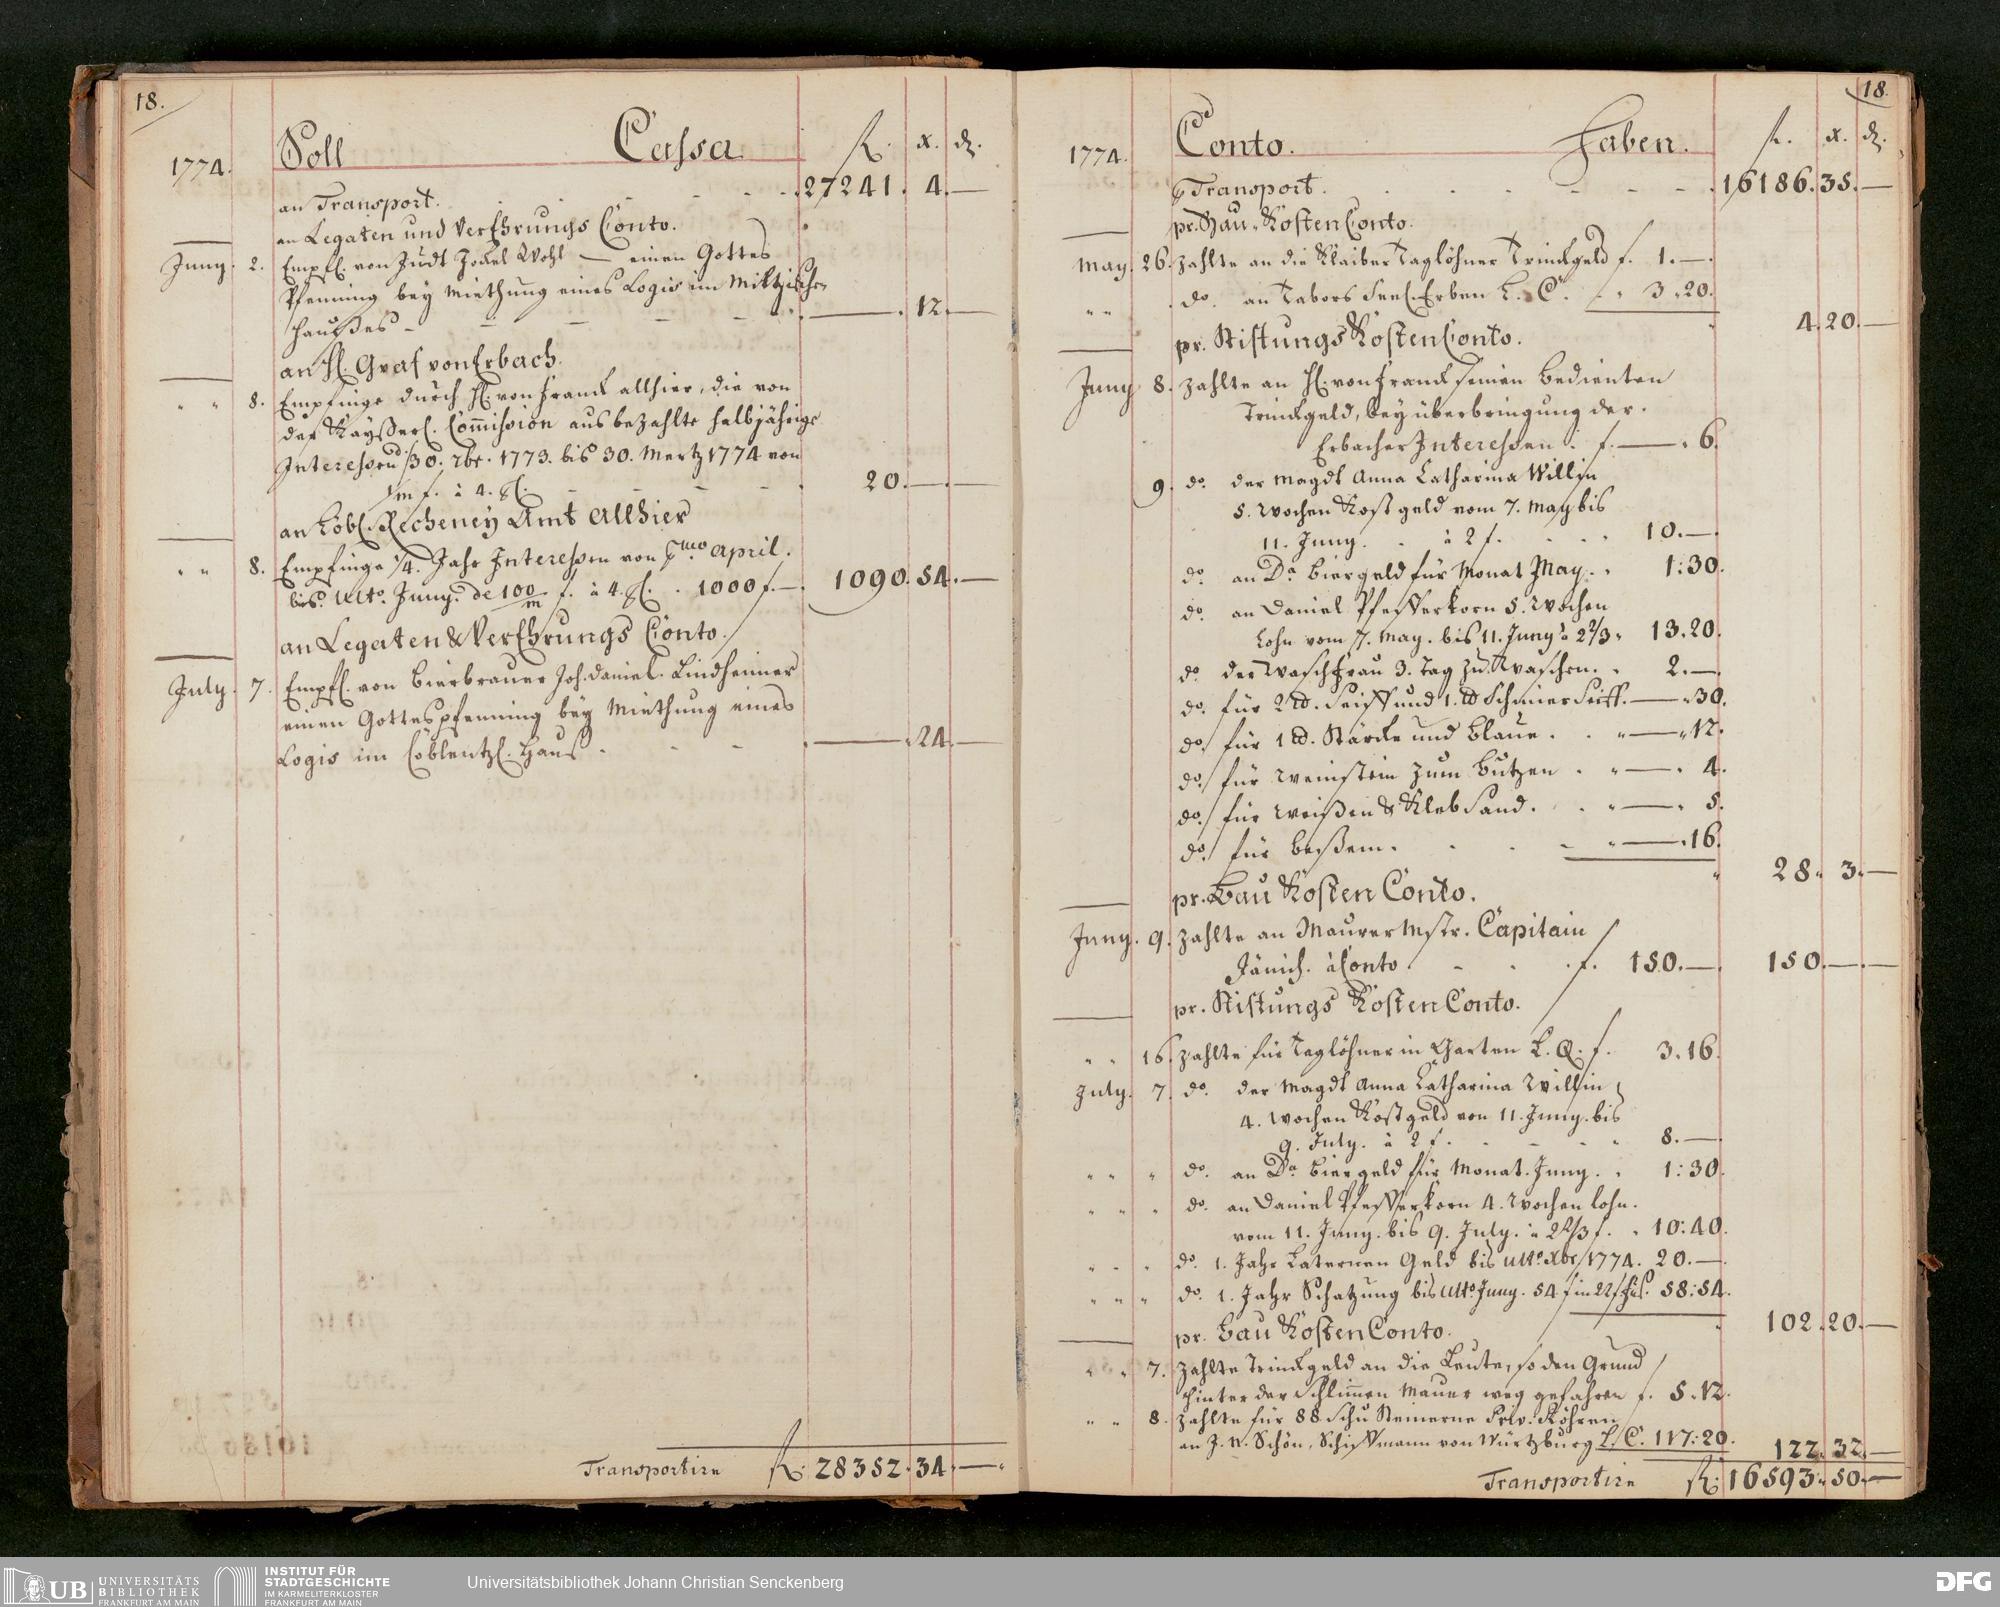 18.
1774.
Soll Cassa fl. x. d.
an Transport. 27241. 4.—
an Legaten und Verehrungs Conto.
Juny. 2. Empfl. von Judt Wohl — einen Gottes
Pfenning bey Miethung eines Logis im
Haußes — 12.—
an H. Graf von Erbach.
" " 8. Empfinge durch H. von Franck allhier, die von
der Kayßerl. Commission ausbezahlte halbjährige
Interessen 30. 7br. 1773. bis 30. Mertz 1774 von
1/m f. à 4. 20.—.—
an Löbl. Recheney Amt allhier
" " 8. Empfinge 1/4. Jahr Interessen von April.
bis Ulto. Juny. de 100/m f. à 4. 1000 f.— 1090. 54.—
an Legaten & Verehrungs Conto.
July. 7. Empfl. von Bierbrauer Joh. Daniel Lindheimer
einen Gottespfenning bey Miethung eines
Logis im Coblentzl. Hauß. — 24.—
Transportire fl. 28352. 34.—
18.
1774.
Conto. Haben. fl. x. d.
Transport. 16186. 35.—
pr. Bau Kosten Conto.
May. 26. Zahlte an die Klaiber Taglöhner Trinckgeld f. 1.—.
" " do. an Tabors Seel. Erben L. C. " 3.20.
4.20.—
pr. Stiftungs Kosten Conto.
Juny 8. Zahlte an H. von Franck seinen Bedienten
Trinckgeld, bey überbringung der
Erbacher Interessen. f.—. 6.
9. do. der Magdt Anna Catharina Willin
5. Wochen Kostgeld vom 7. May bis
11. Juny. à 2 f. 10.—.
do. an Da. Biergeld für Monat May. 1:30.
do. an Daniel Pfefferkorn 5. Wochen
Lohn vom 7. May. bis 11. Juny à 2 2/3 " 13.20.
do. der Waschfrau 3. Tag zu Waschen. 2.—.
do. für 2 lb. Seiff und 1. lb Schmier Seiff. — "30.
do. für 1 lb. Stärcke und Blaue. " — "12.
do. für Weinstein zum Butzen. " —. 4.
do. für Weißen & Kleb Sand. " —. 5.
do. für Beßem. " —.16.
28. 3.—
pr. Bau Kosten Conto.
Juny. 9. Zahlte an Maurer Mstr. Capitain
Jänich. à Conto f. 150.—. 150.—.—
pr. Stiftungs Kosten Conto.
" " 16. Zahlte für Taglöhner in Garten L. Q. f. 3.16.
July. 7. do. der Magdt Anna Catharina Willin
4. Wochen Kostgeld von 11. Juny. bis
9. July. à 2 f. 8.—.
" " " do. an Da. Biergeld für Monat. Juny. 1:30.
" " " do. an Daniel Pfefferkorn 4. Wochen Lohn.
vom 11. Juny. bis 9. July. à 2 2/3 f. " 10:40.
" " " do. 1. Jahr Laternen Geld bis Ulto. Xbr. 1774. 20.—.
" " " do. 1. Jahr Schatzung bis Ulto. Juny. 54 f in 22 f 58:54.
102.20.—
pr. Bau Kosten Conto.
" " 7. Zahlte Trinckgeld an die Leute, so den Grund
hinter der Schlimmen Mauer weg gefahren f. 5.12.
" " 8. Zahlte für 88. Schu Steinerne Röhren
an J. N. Schön, Schiffmann von Würtzburg L. C. 117:20.
122. 32.—
Transportire fl. 16593. 50.—
UB UNIVERSITÄTS
BIBLIOTHEK
FRANKFURT AM MAIN
INSTITUT FÜR
STADTGESCHICHTE
IM KARMELITERKLOSTER
FRANKFURT AM MAIN
Universitätsbibliothek Johann Christian Senckenberg
DFG